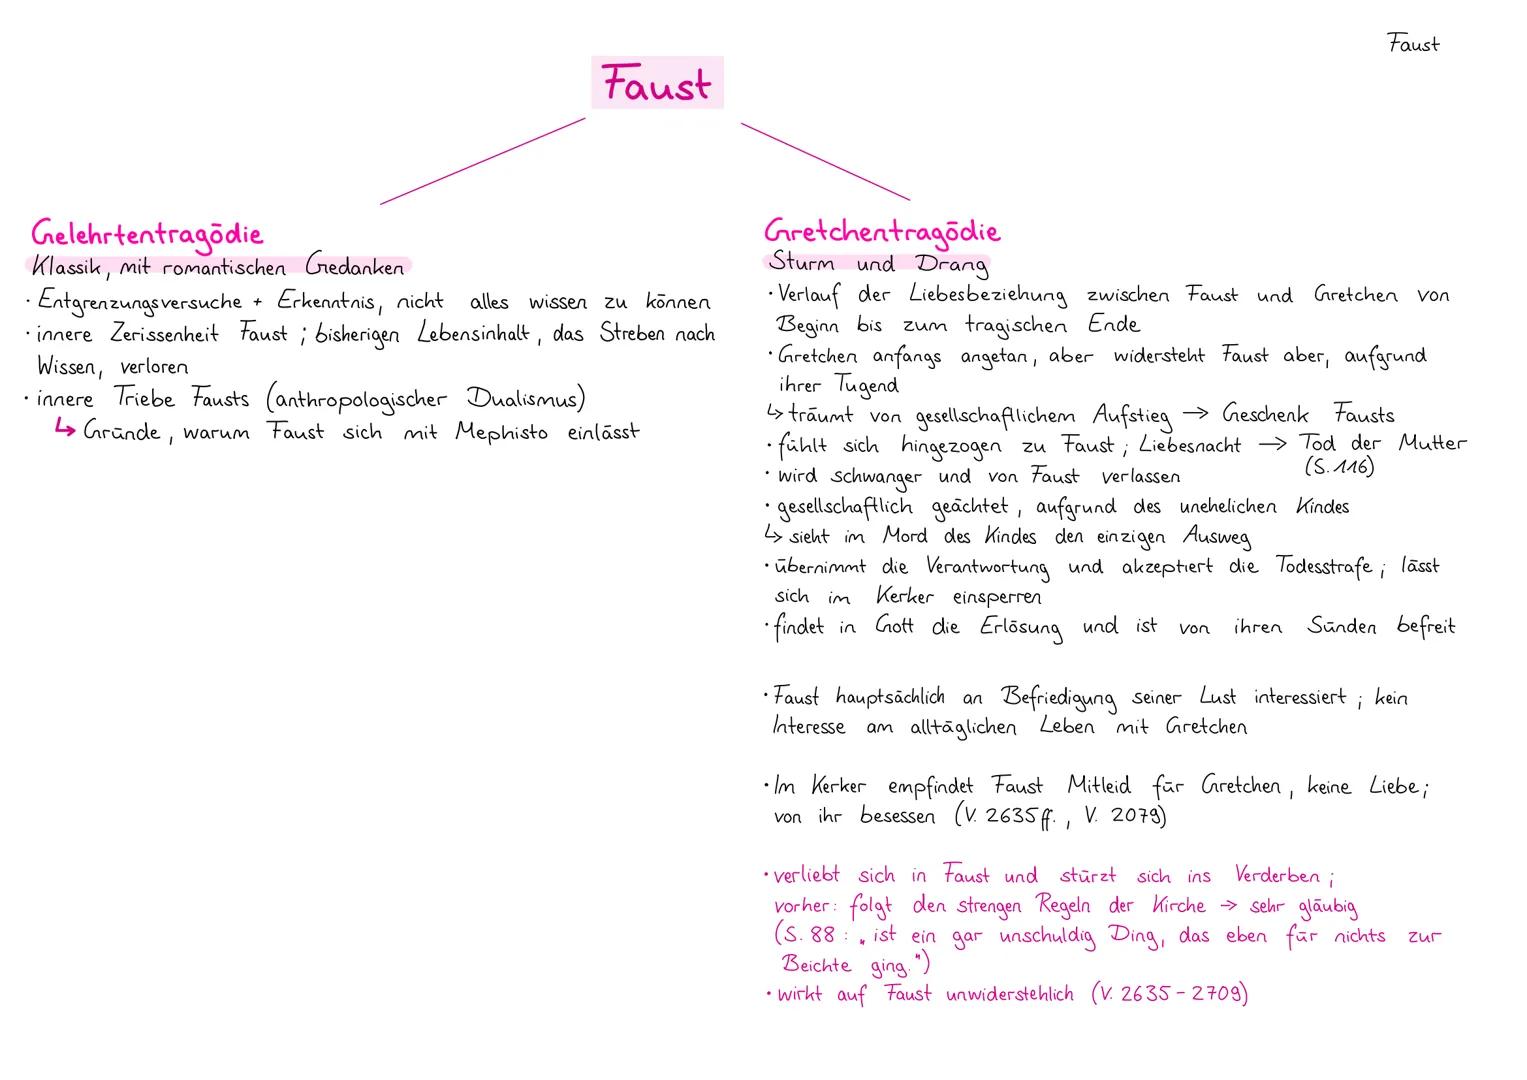 Faust
Faust
Gelehrtentragödie
Klassik, mit romantischen Gedanken
· Entgrenzungsversuche + Erkenntnis, nicht alles wissen zu können
· innere Zerissenheit Faust ; bisherigen Lebensinhalt, das Streben nach
Wissen, verloren
· innere Triebe Fausts (anthropologischer Dualismus)
↳ Gründe, warum Faust sich mit Mephisto einlässt
Gretchentragödie
Sturm und Drang
· Verlauf der Liebesbeziehung zwischen Faust und Gretchen von
Beginn bis zum tragischen Ende
· Gretchen anfangs angetan, aber widersteht Faust aber, aufgrund
ihrer Tugend
↳ träumt von gesellschaftlichem Aufstieg → Geschenk Fausts
· fühlt sich hingezogen zu Faust ; Liebesnacht → Tod der Mutter
(S. 116)
· wird schwanger und von Faust verlassen
· gesellschaftlich geächtet, aufgrund des unehelichen Kindes
↳ sieht im Mord des Kindes den einzigen Ausweg
· übernimmt die Verantwortung und akzeptiert die Todesstrafe ; lässt
sich im Kerker einsperren
· findet in Gott die Erlösung und ist von ihren Sünden befreit
· Faust hauptsächlich an Befriedigung seiner Lust interessiert ; kein
Interesse am alltäglichen Leben mit Gretchen
· Im Kerker empfindet Faust Mitleid für Gretchen, keine Liebe ;
von ihr besessen (V. 2635 ff., V. 2079)
· verliebt sich in Faust und stürzt sich ins Verderben ;
vorher: folgt den strengen Regeln der Kirche → sehr gläubig
(S. 88 : „ist ein gar unschuldig Ding, das eben für nichts zur
Beichte ging.")
· wirkt auf Faust unwiderstehlich (V. 2635 - 2709)